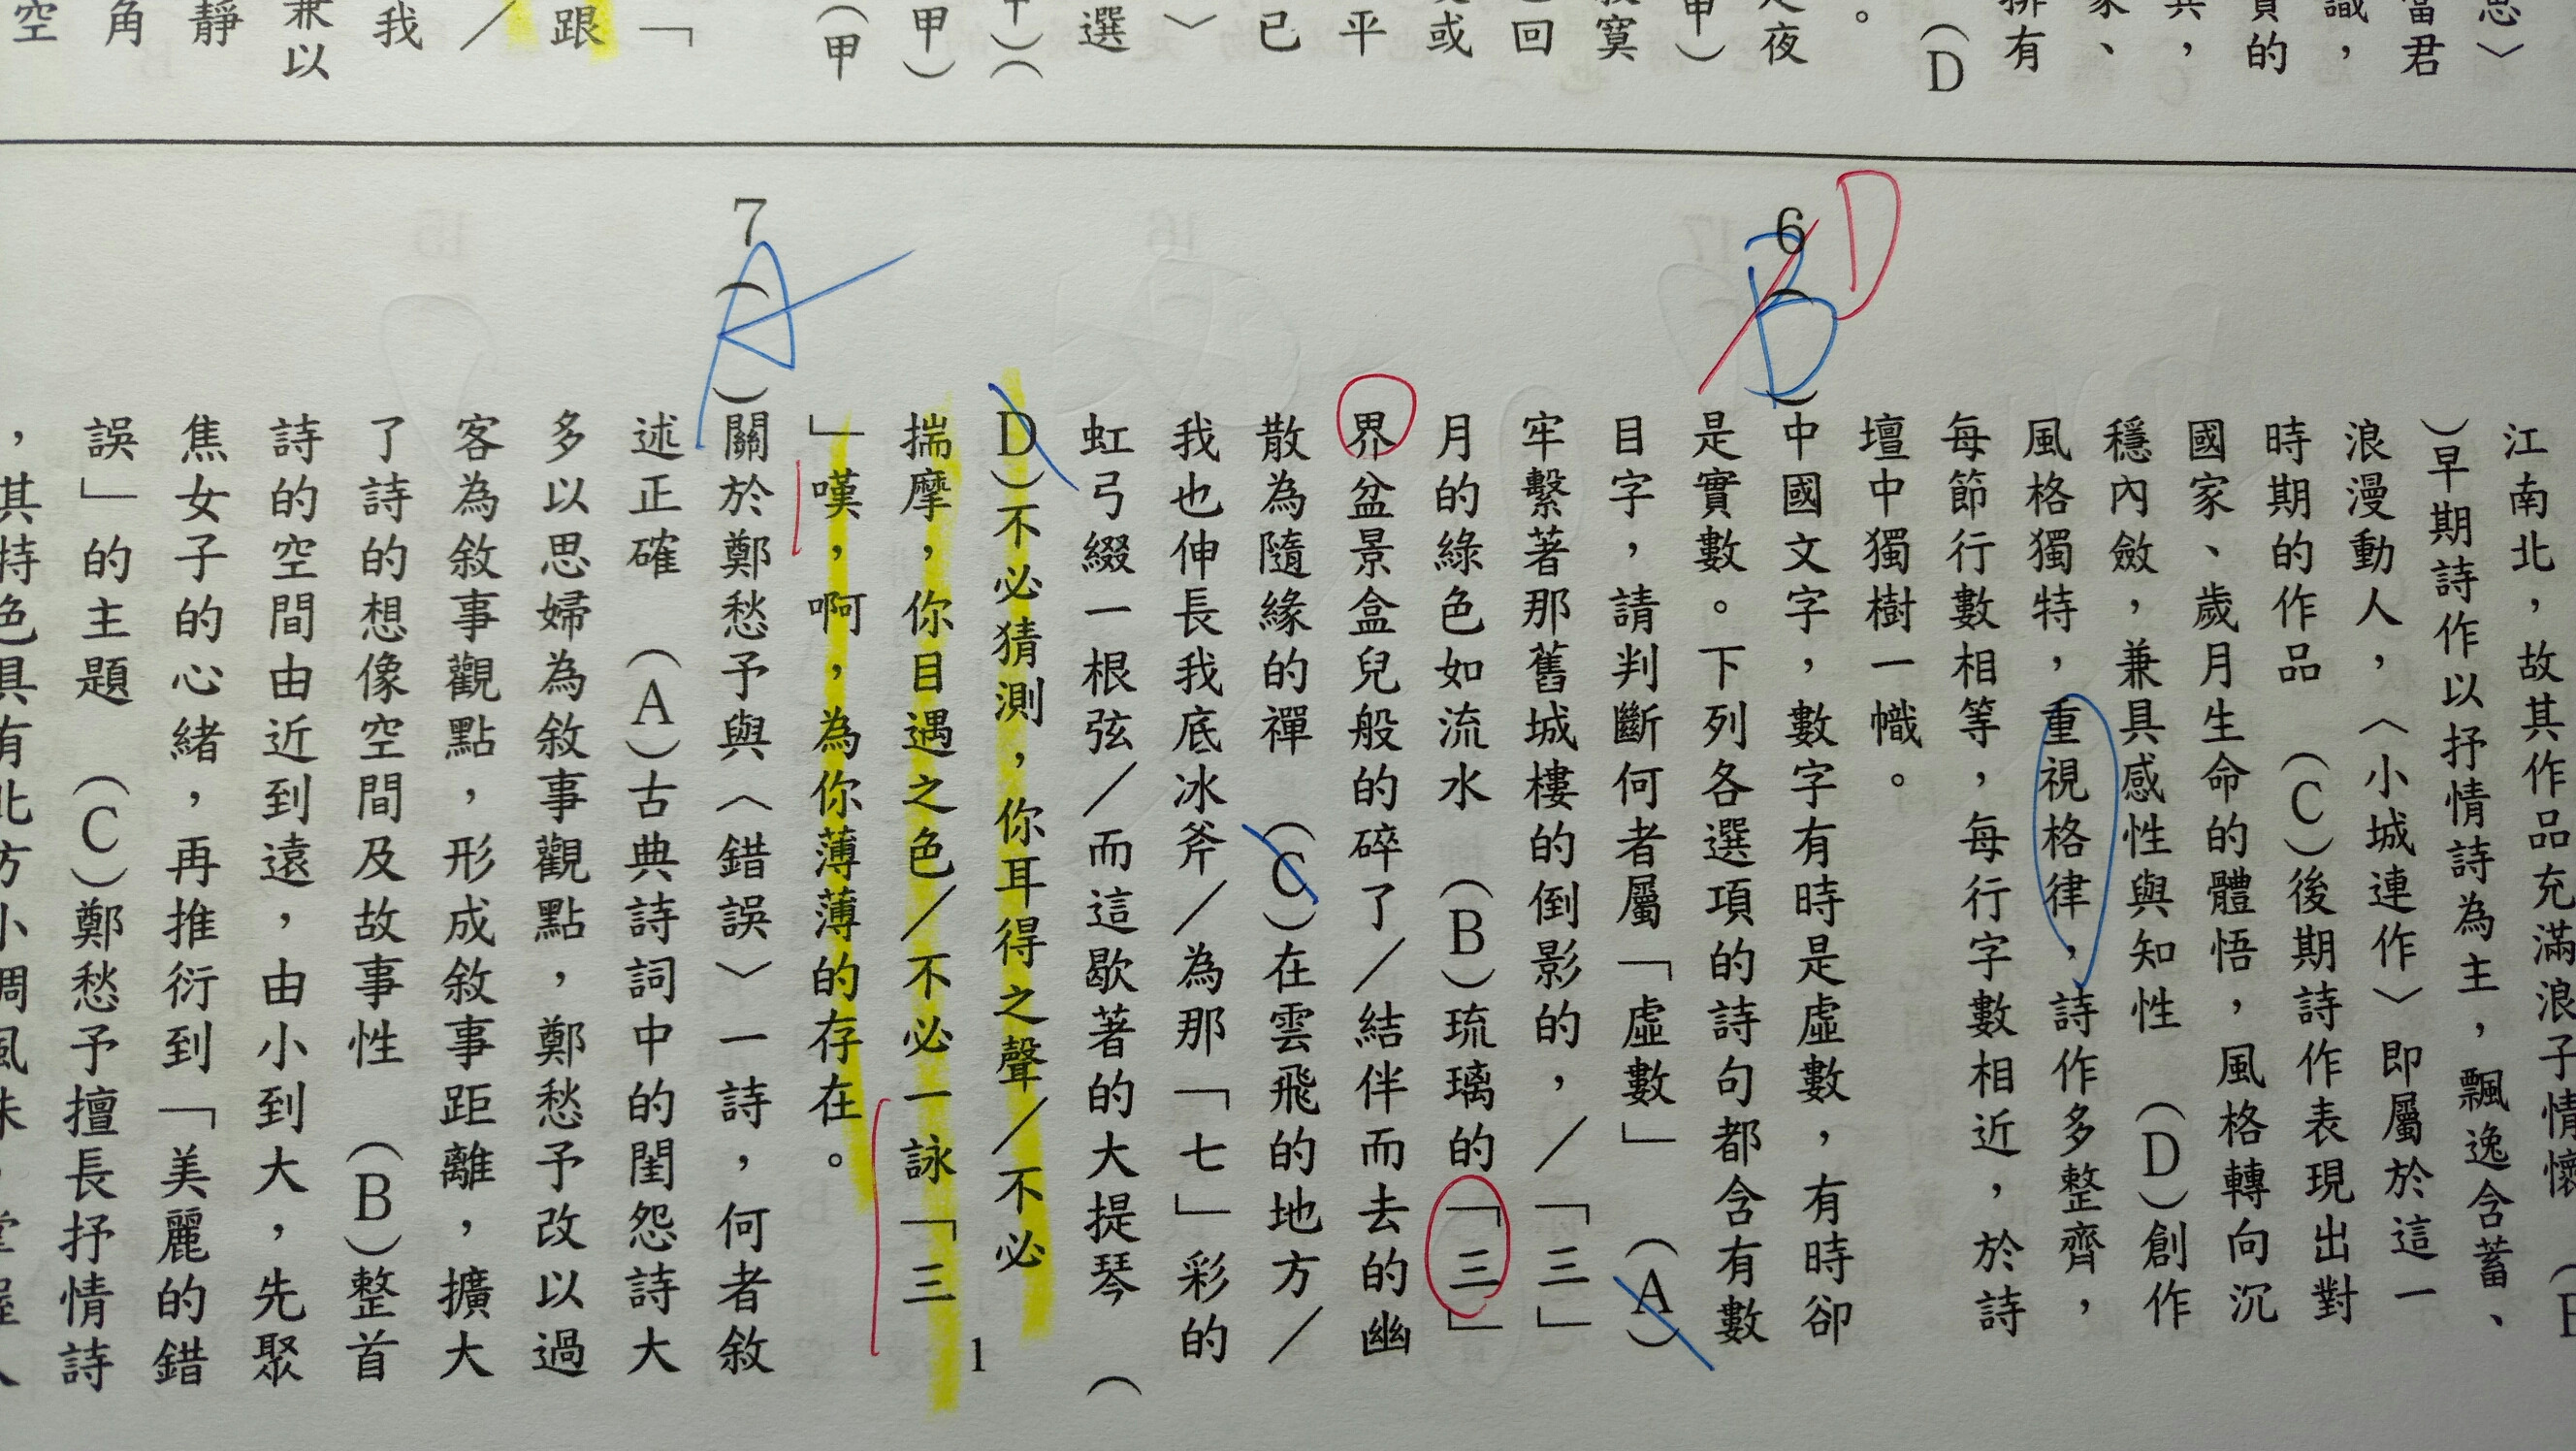 思〉
當君
識，
負的
其，
家、
排有
（D
。
是夜
甲）
寂寞
回
或
平
已
〉
選
）（
甲）
（甲
「
跟
／
我
靜
兼以
角
空
江南北，故其作品充滿浪子情懷
）早期詩作以抒情詩為主，飄逸含蓄、
浪漫動人，〈小城連作〉即屬於這一
時期的作品　（C）後期詩作表現出對
國家、歲月生命的體悟，風格轉向沉
穩內斂，兼具感性與知性　（D）創作
風格獨特，重視格律，詩作多整齊，
每節行數相等，每行字數相近，於詩
壇中獨樹一幟。
D
B
6（　）中國文字，數字有時是虛數，有時卻
是實數。下列各選項的詩句都含有數
目字，請判斷何者屬「虛數」　（A）
牢繫著那舊城樓的倒影的，／「三」
月的綠色如流水　（B）琉璃的「三」
界盆景盒兒般的碎了／結伴而去的幽
散為隨緣的禪　（C）在雲飛的地方／
我也伸長我底冰斧／為那「七」彩的
虹弓綴一根弦／而這歇著的大提琴　（
D）不必猜測，你耳得之聲／不必
揣摩，你目遇之色／不必一詠「三
」嘆，啊，為你薄薄的存在。
1
A
7（　）關於鄭愁予與〈錯誤〉一詩，何者敘
述正確　（A）古典詩詞中的閨怨詩大
多以思婦為敘事觀點，鄭愁予改以過
客為敘事觀點，形成敘事距離，擴大
了詩的想像空間及故事性　（B）整首
詩的空間由近到遠，由小到大，先聚
焦女子的心緒，再推衍到「美麗的錯
誤」的主題　（C）鄭愁予擅長抒情詩
，其特色具有北方小調風味，